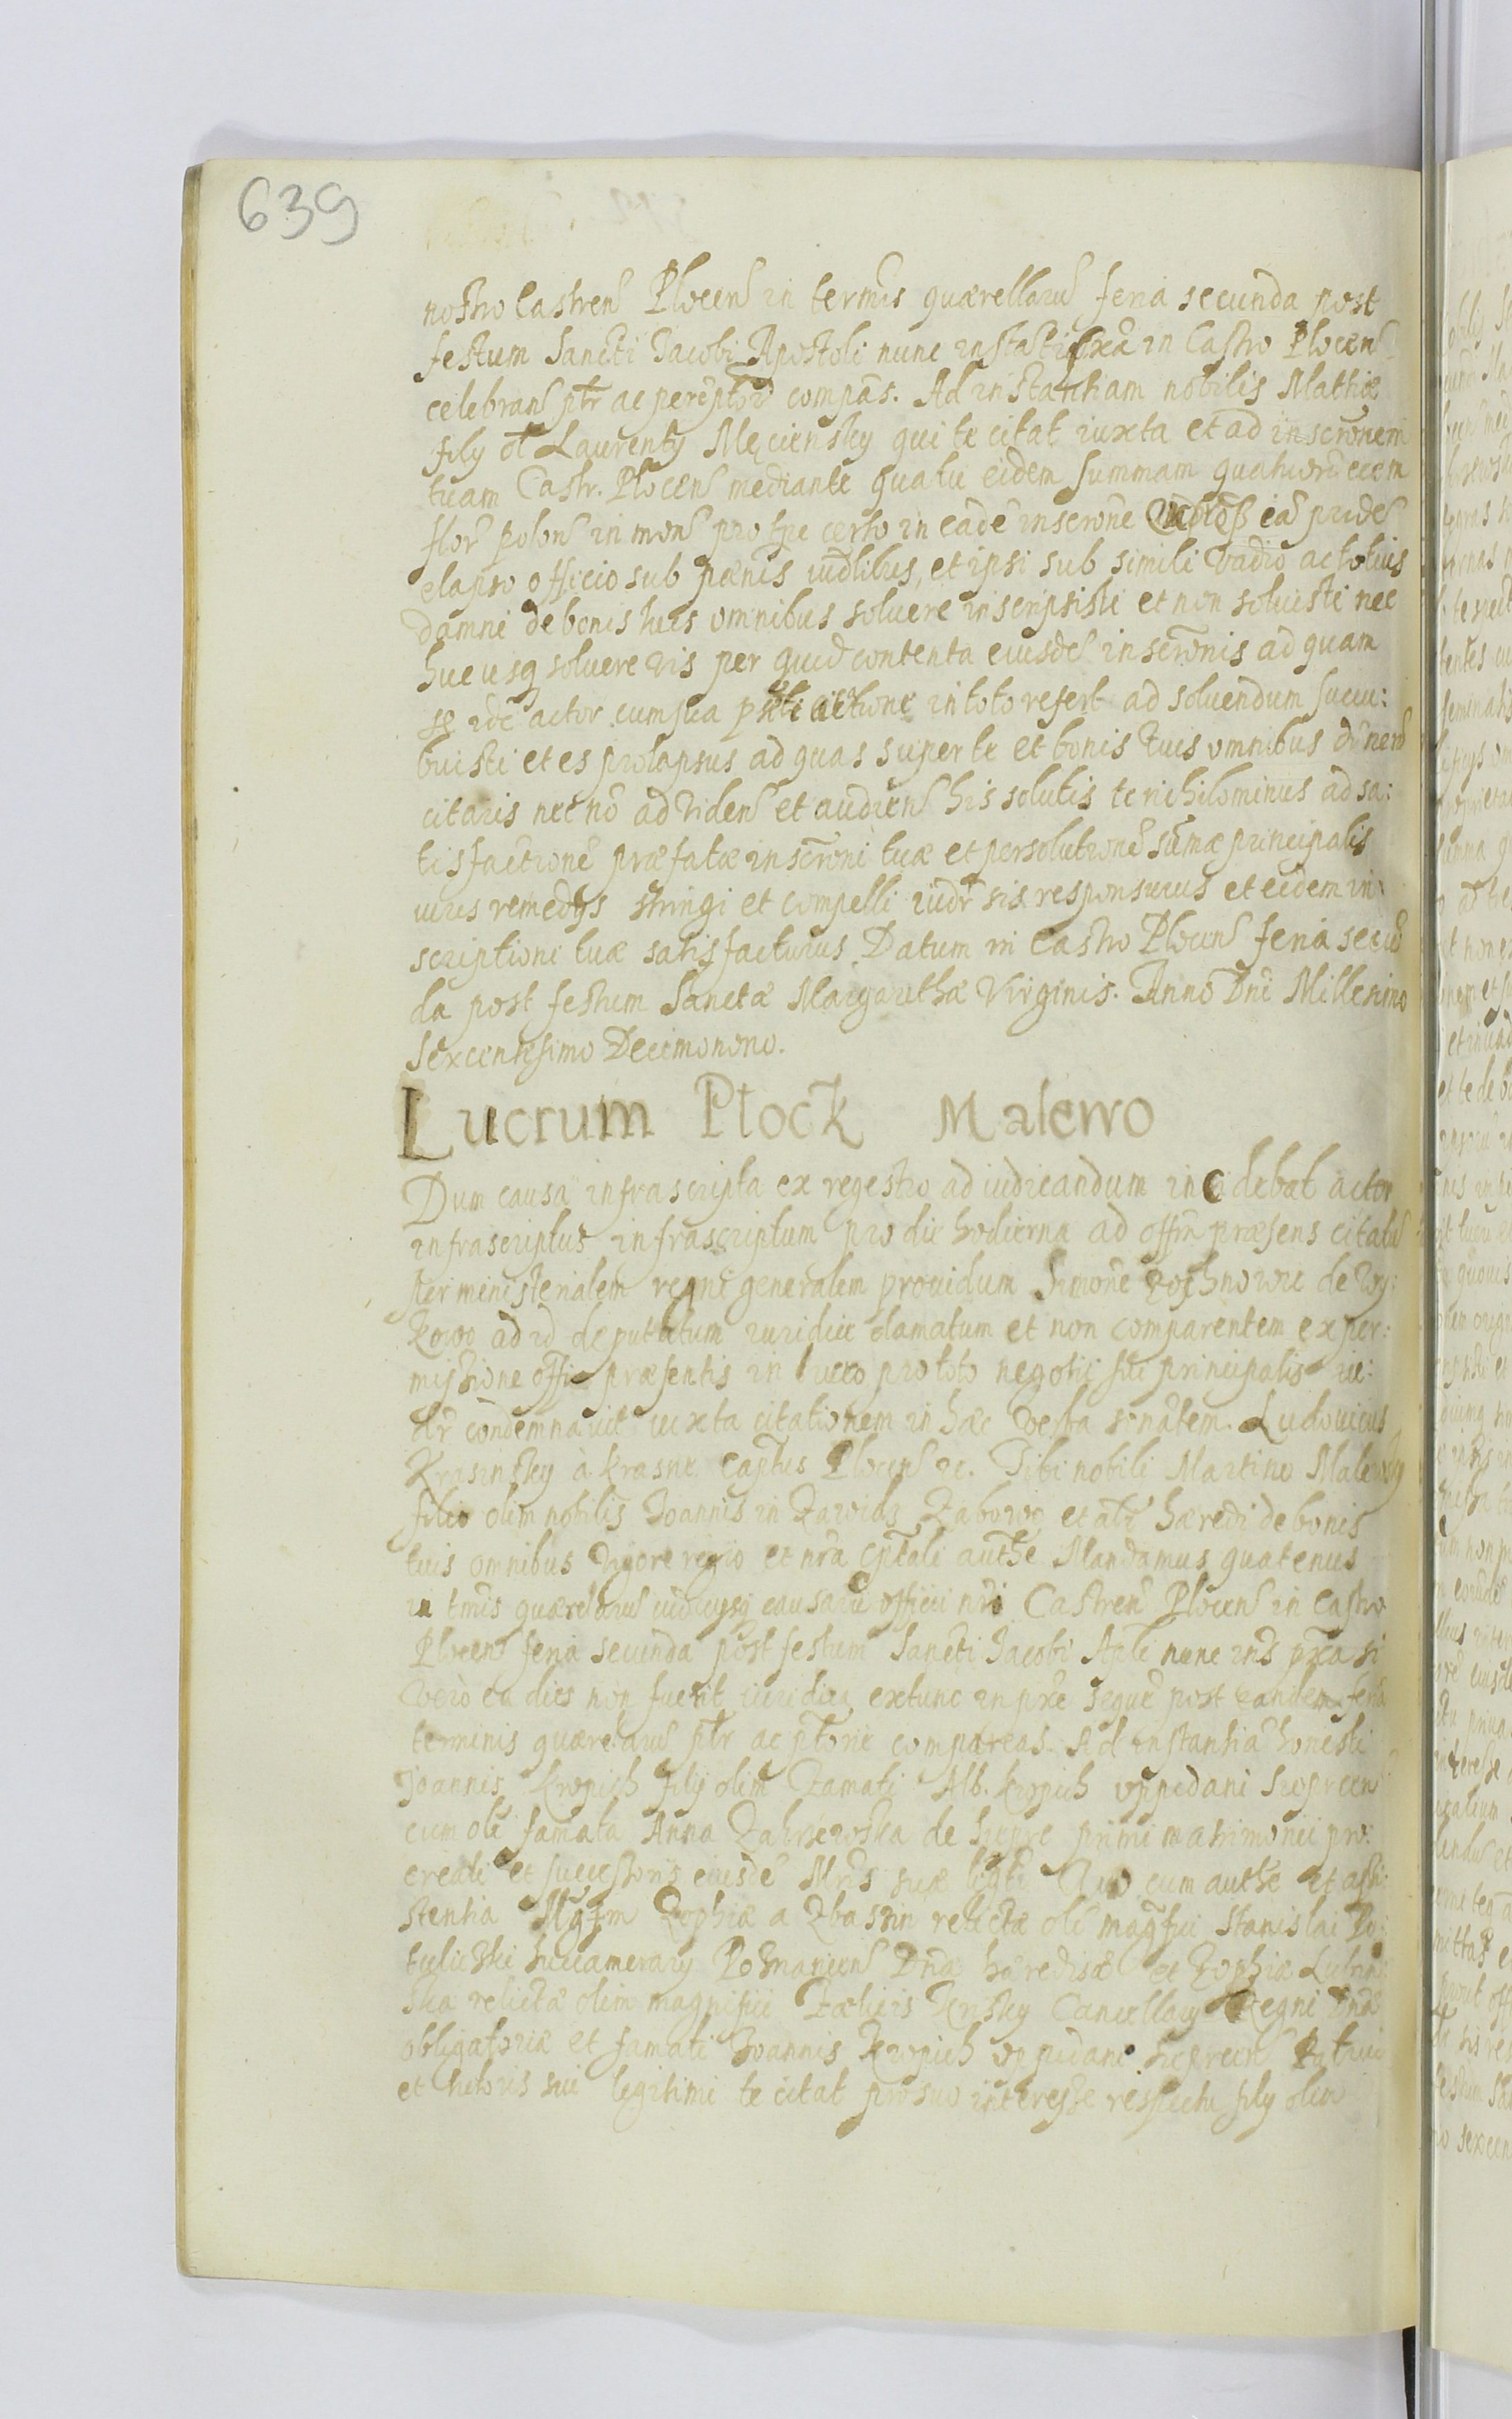 639
nostro Castren Plocen in termis quærellaru feria secunda post
festum Sancti Jacobi Apostoli nunc instati pxa in Castro Plocen
celebran ptr ac peremptor compas. Ad instantiam nobilis Mathiæ
fily ol Laurenty Męciensky qui te citat iuxta et ad inscronem
tuam Castr. Plocen mediante qua tu eidem summam quatuordecem
flor polon in mon pro tpe certo in eade inscrone eas prides
elapso officio sub pœnis iudlibus, et ipsi sub simili vadio ac totius
damni de bonis tuis omnibus soluere inscripsisti et non soluisti nec
huc usq soluere vis per quid contenta eiusde inscronis ad quam
se ide actor cum sua pnti actione in toto refert ad soluendum succu:
buisti et es prolapsus ad quas super te et bonis tuis omnibus
citaris nec no ad viden et audien his solutis te nihilominus ad sa:
tisfactione præfatæ inscroni tuæ et persolutione sumæ principalis
iuris remedys stringi et compelli iudr sis responsurus et eidem in
scriptioni tuæ satisfacturus. Datum in Castro Plocen feria secu
da post festum Sanctæ Margarethæ Virginis. Anno Dni Millesimo
sexcentesimo Decimonono.
Lucrum Płock Malewo
Dum causa infrascripta ex regestro ad iudicandum incidebat actor
infrascriptus infrascriptum pro die hodierna ad offm præsens citatu
per ministerialem regni generalem prouidum Simone de Wy:
kowo ad id deputatum iuridice clamatum et non comparentem ex per:
missione offi præsentis in lucro pro toto negotio sui principalis iu:
dr condemnauit iuxta citationem in hæc verba sonatem. Ludouicus
Krasinsky à Krasne Captus Plocen etc. Tibi nobili Martino Malewsky
filio olim nobilis Joannis in Zawidz Zabowo et alr hæredi de bonis
tuis omnibus vigore regio et nra cptali authe Mandamus quatenus
in tmis quærelaru iudicysq causaru officii nri Castren Plocen in Castro
Plocen feria secunda post festum Sancti Jacobi Apli nunc ins pxa si
vero ea dies non fuerit iuridica extunc in pxe seque post eandem feria
terminis quærelaru ptr ac ptorie compareas. Ad instantia honesti
Joannis Kropich filij olim Famati Alb. Kropich oppidani Sieprcen
cum oli famata Anna Zakrzewska de Sieprc primi matrimonii pro:
creati et successoris eiusde Mris suæ ligti Qui cum authe et assi:
stentia Mgfm Zophiæ a Zbaszin relictæ oli magfici Stanislai Po:
tulicki succamerary Posnanien Dnæ hæredisæ et Zophiæ Lubin
ska relictæ olim magnifici Fælicis Krisky Cancellary Regni Dnæ
obligatoriæ et famati Joannis Kropich oppidani Sieprcen Patrui
et tutoris sui legitimi te citat pro suo interesse respectu fily olim